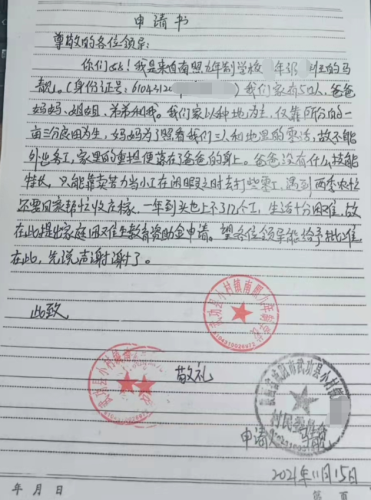 申请书
尊敬的各位领导:
你们好!我是来自南照九年制学校 年级 班的马
靓。(身份证号:6104312 )我们家有5口人,爸爸
妈妈、姐姐、弟弟和我。我们家以种地为主,仅靠所分的一
亩三分农田为生,妈妈为了照看我们三人和地里的农活,故不能
外出务工,家里的重担便落在爸爸的身上。爸爸没有什么技能
特长,只能靠卖苦力当小工在闲暇之时去打些零工,遇到两季农忙
还要回家帮忙收庄稼,一年到头也上不了几个工,生活十分困难,故
在此提出家庭困难生教育资助金申请。望各位领导能给予批准
在此,先说声谢谢了。
此致
敬礼
武功县小村镇南照九年制学校
村民委员会
申请人:马靓
2021年11月15日
年 月 日
第 页